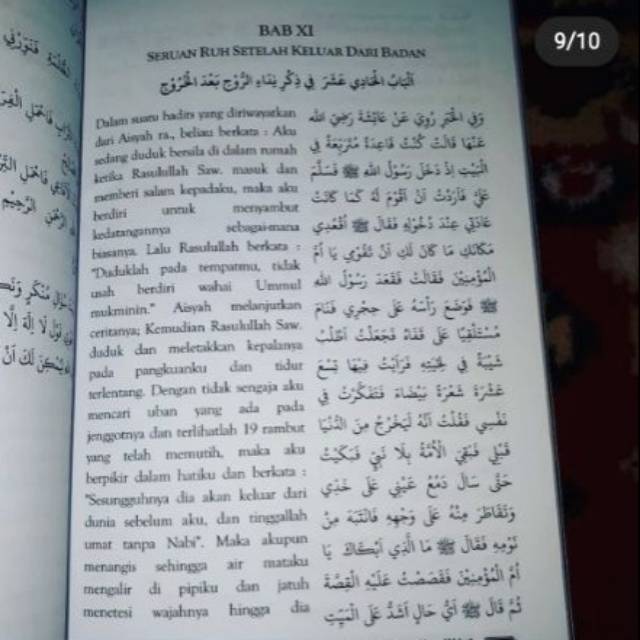 9/10
BAB XI
SERUAN RUH SETELAH KELUAR DARI BADAN
اَلْبَابُ الْحَادِي عَشَرَ فِي ذِكْرِ نِدَاءِ الرُّوْحِ بَعْدَ الْخُرُوْجِ
Dalam suatu hadits yang diriwayatkan
dari Aisyah ra., beliau berkata : Aku
sedang duduk bersila di dalam rumah
ketika Rasulullah Saw. masuk dan
memberi salam kepadaku, maka aku
berdiri untuk menyambut
kedatangannya sebagai-mana
biasanya. Lalu Rasulullah berkata :
"Duduklah pada tempatmu, tidak
usah berdiri wahai Ummul
mukminin." Aisyah melanjutkan
ceritanya; Kemudian Rasulullah Saw.
duduk dan meletakkan kepalanya
pada pangkuanku dan tidur
terlentang. Dengan tidak sengaja aku
mencari uban yang ada pada
jenggotnya dan terlihatlah 19 rambut
yang telah memutih, maka aku
berpikir dalam hatiku dan berkata :
"Sesungguhnya dia akan keluar dari
dunia sebelum aku, dan tinggallah
umat tanpa Nabi". Maka akupun
menangis sehingga air mataku
mengalir di pipiku dan jatuh
menetesi wajahnya hingga dia
وَفِي الْخَبَرِ رُوِيَ عَنْ عَائِشَةَ رَضِيَ اللهُ
عَنْهَا قَالَتْ كُنْتُ قَاعِدَةً مُتَرَبِّعَةً فِي
الْبَيْتِ إِذْ دَخَلَ رَسُوْلُ اللهِ ﷺ فَسَلَّمَ
عَلَيَّ فَأَرَدْتُ أَنْ أَقُوْمَ لَهُ كَمَا كَانَتْ
عَادَتِي عِنْدَ دُخُوْلِهِ فَقَالَ ﷺ اُقْعُدِي
مَكَانَكِ مَا كَانَ لَكِ أَنْ تَقُوْمِي يَا أُمَّ
الْمُؤْمِنِيْنَ فَقَالَتْ فَقَعَدَ رَسُوْلُ اللهِ
ﷺ فَوَضَعَ رَأْسَهُ عَلَى حِجْرِي فَنَامَ
مُسْتَلْقِيًا عَلَى قَفَاهُ فَجَعَلْتُ أَطْلُبُ
شَيْبَةً فِي لِحْيَتِهِ فَرَأَيْتُ فِيْهَا تِسْعَ
عَشْرَةَ شَعْرَةً بَيْضَاءَ فَتَفَكَّرْتُ فِي
نَفْسِي فَقُلْتُ أَنَّهُ لَيَخْرُجُ مِنَ الدُّنْيَا
قَبْلِي فَتَبْقَى الْأُمَّةُ بِلَا نَبِيٍّ فَبَكَيْتُ
حَتَّى سَالَ دَمْعُ عَيْنِي عَلَى خَدِّي
وَتَقَاطَرَ مِنْهُ عَلَى وَجْهِهِ فَانْتَبَهَ مِنْ
نَوْمِهِ فَقَالَ ﷺ مَا الَّذِي أَبْكَاكِ يَا
أُمَّ الْمُؤْمِنِيْنَ فَقَصَصْتُ عَلَيْهِ الْقِصَّةَ
ثُمَّ قَالَ ﷺ أَيُّ حَالٍ أَشَدُّ عَلَى الْمَيِّتِ